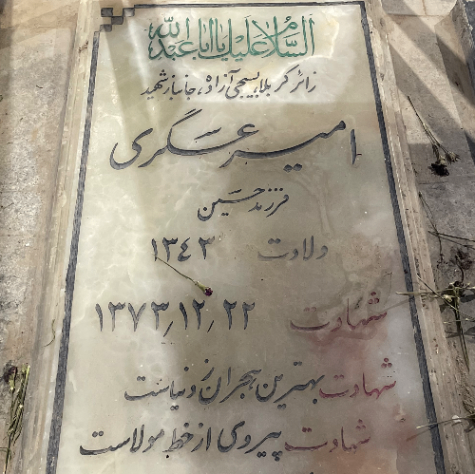 السلام علیك یا اباعبدالله
زائر کربلا بسیجی آزاده، جانباز شهید
امیر عسگری
فرزند حسین
ولادت ۱۳۴۳
شهادت ۱۳۷۳٫۱۲٫۲۲
شهادت بهترین هجران ز دنیاست
شهادت پیروی از خط مولاست